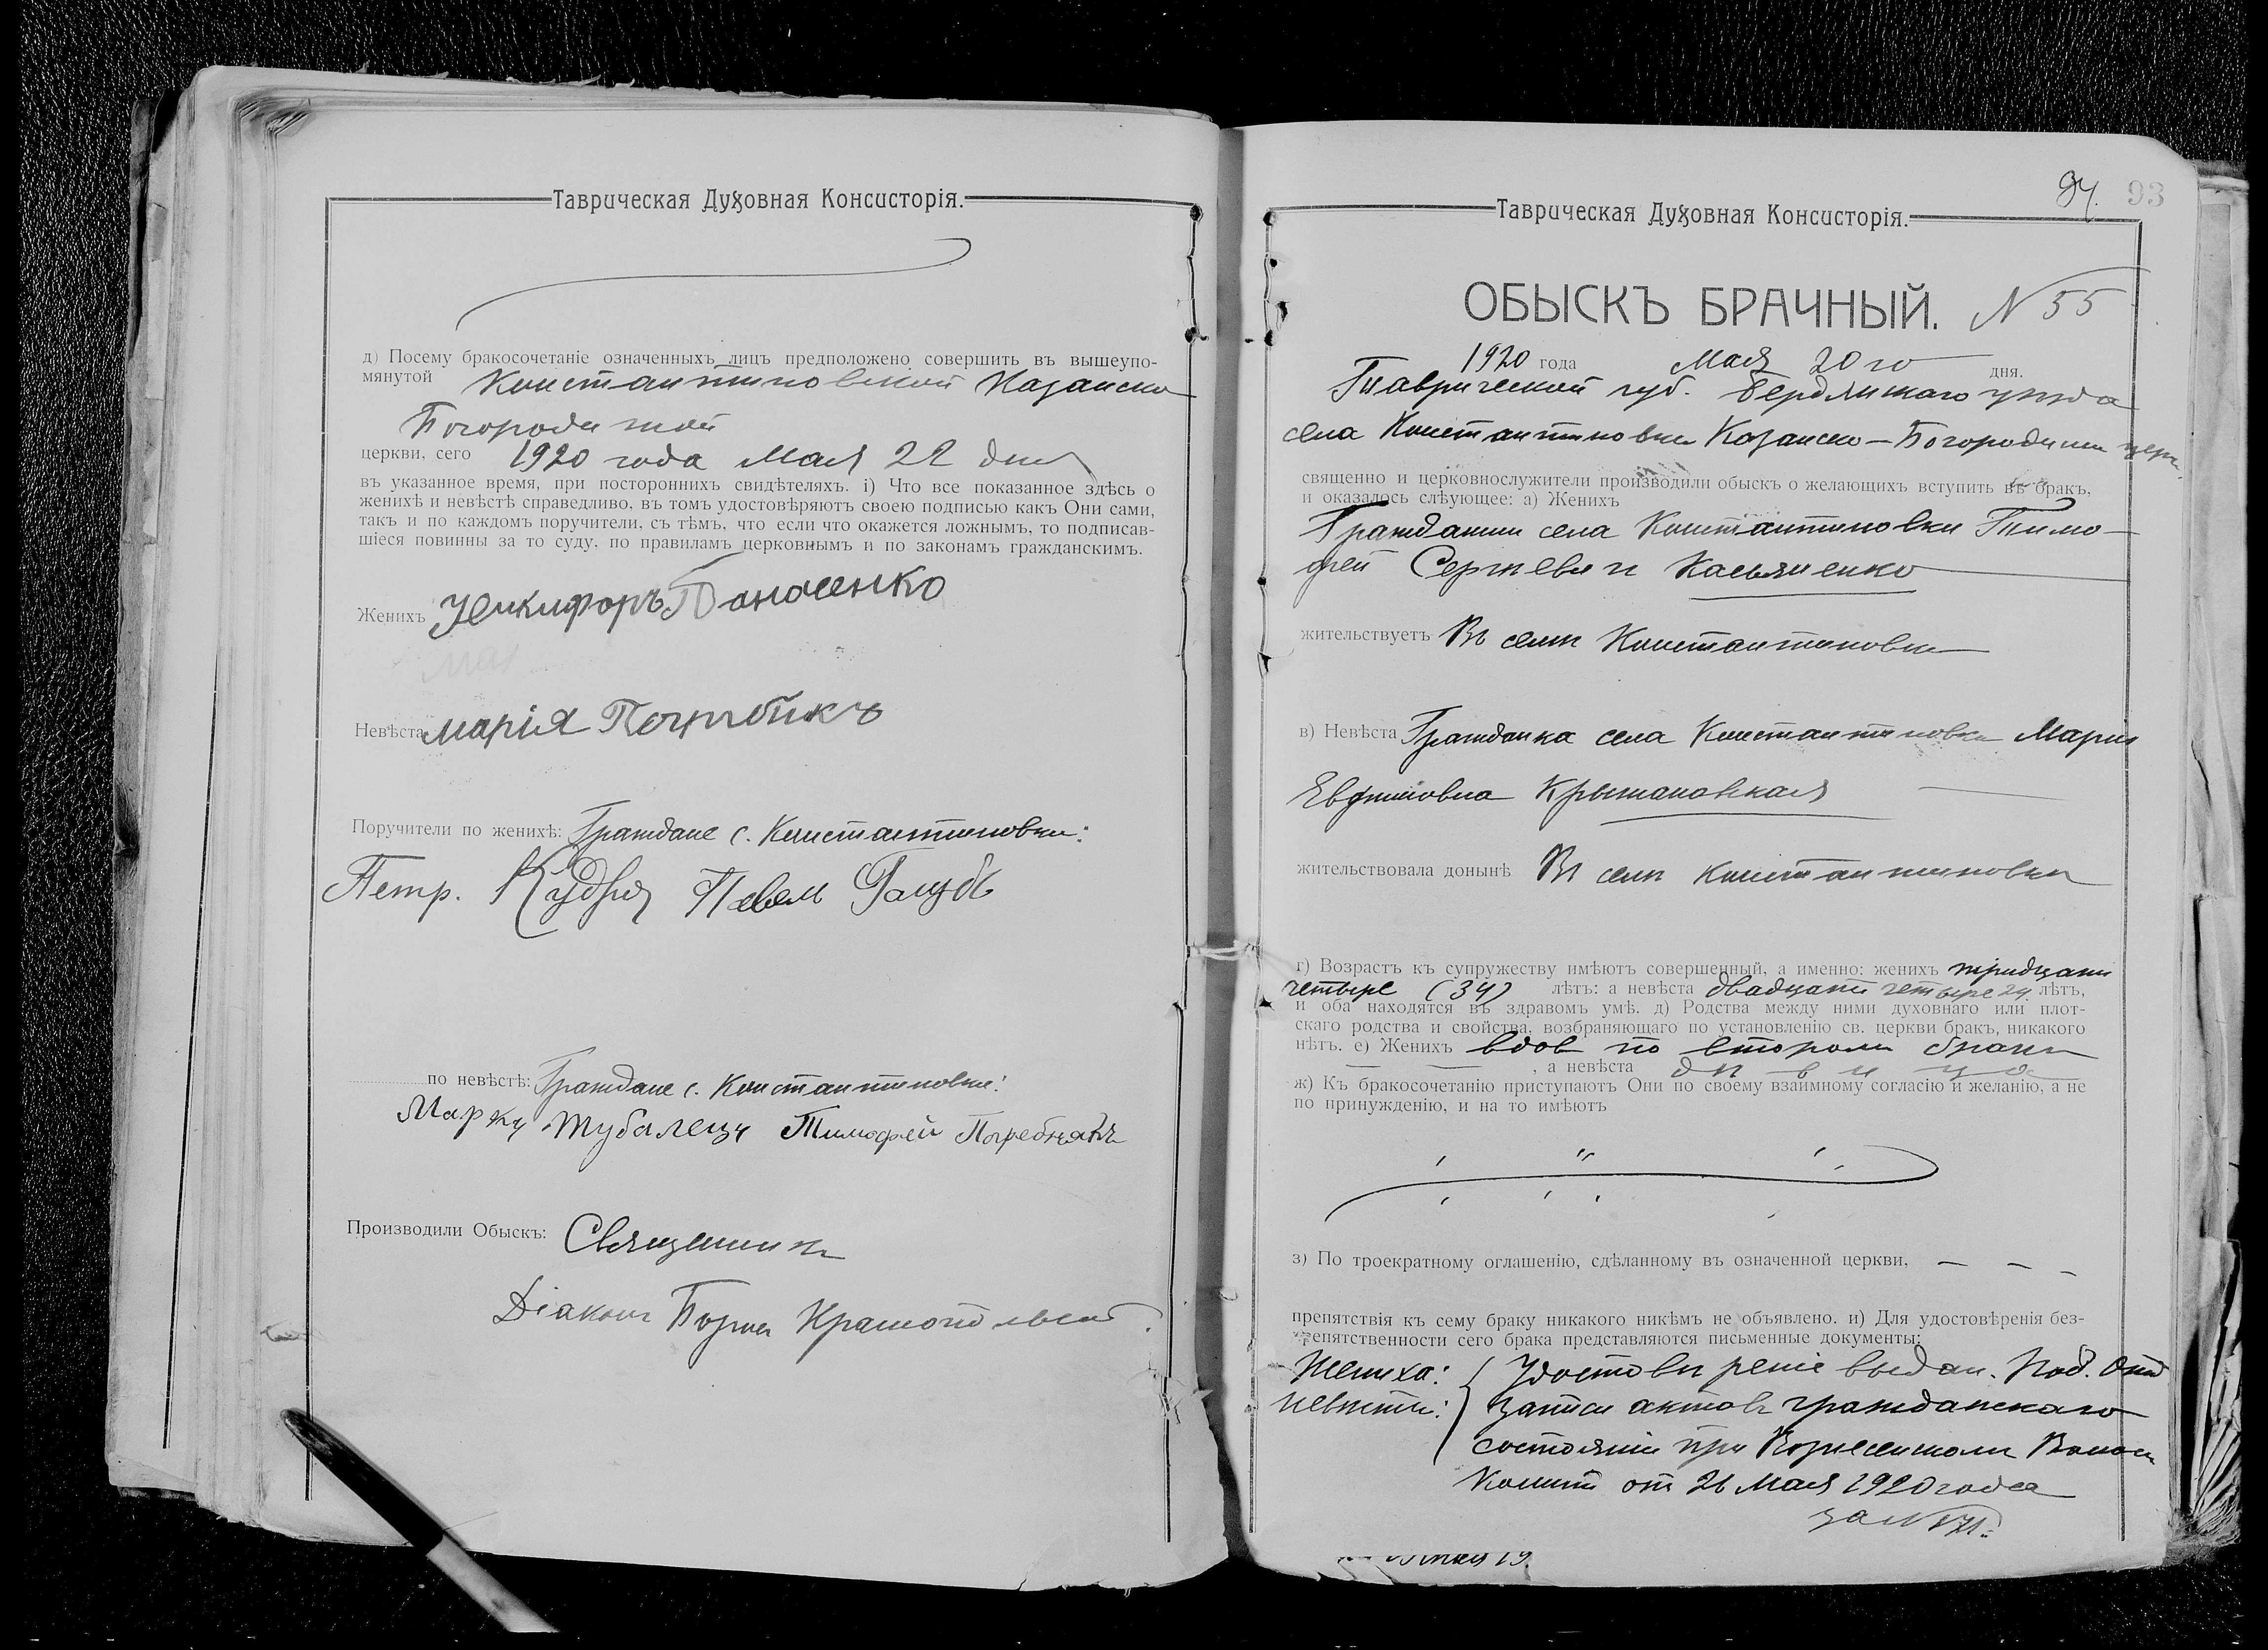 Таврическая Духовная Консисторія.
д) Посему бракосочетаніе означенныхъ лицъ предположено совершить въ вышеупо-
мянутой Константиновской Казанско
Богородичной
церкви, сего 1920 года Мая 22 дня
въ указанное время, при постороннихъ свидѣтеляхъ. і) Что все показанное здѣсь о
женихѣ и невѣстѣ справедливо, въ томъ удостовѣряютъ своею подписью какъ Они сами,
такъ и по каждомъ поручители, съ тѣмъ, что если что окажется ложнымъ, то подписав-
шіеся повинны за то суду, по правиламъ церковнымъ и по законамъ гражданскимъ.
Женихъ Никифоръ
Невѣста Марія
Поручители по женихѣ: Граждане с. Константиновки:
Петр. Кудря Павелъ Голубь
по невѣстѣ: Граждане с. Константиновки:
Марку Тимофей Погребнякъ
Производили Обыскъ: Священникъ
Діаконъ
94. 93
Таврическая Духовная Консисторія.
ОБЫСКЪ БРАЧНЫЙ. N 55
1920 года Мая 20 го дня.
Таврической губ. Бердянскаго уѣзда
села Константиновки Казанско-Богородичн церк.
священно и церковнослужители производили обыскъ о желающихъ вступить въ бракъ,
и оказалось слѣующее: а) Женихъ
Гражданин села Константиновки Тимо-
фей Сергѣевич Касьяненко
жительствуетъ Въ селѣ Константиновкѣ
в) Невѣста Гражданка села Константиновки Мария
Евфимовна Крыжановская
жительствовала донынѣ Въ селѣ Константиновкѣ
г) Возрастъ къ супружеству имѣютъ совершенный, а именно: женихъ тридцати
четыре (34) лѣтъ: а невѣста двадцати четыре 24 лѣтъ,
и оба находятся въ здравомъ умѣ. д) Родства между ними духовнаго или плот-
скаго родства и свойства, возбраняющаго по установленію св. церкви бракъ, никакого
нѣтъ. е) Женихъ вдов по втором бракѣ
, а невѣста дѣвица
ж) Къ бракосочетанію приступаютъ Они по своему взаимному согласію и желанію, а не
по принужденію, и на то имѣютъ
з) По троекратному оглашенію, сдѣланному въ означенной церкви,
препятствія къ сему браку никакого никѣмъ не объявлено. и) Для удостовѣренія без-
препятственности сего брака представляются письменные документы:
Жениха: Удостовѣреніе выдан. Под. Отд
невѣсты: записи актовъ гражданскаго
состоянія при Волос
Комит от 21 Мая 1920 года
за N